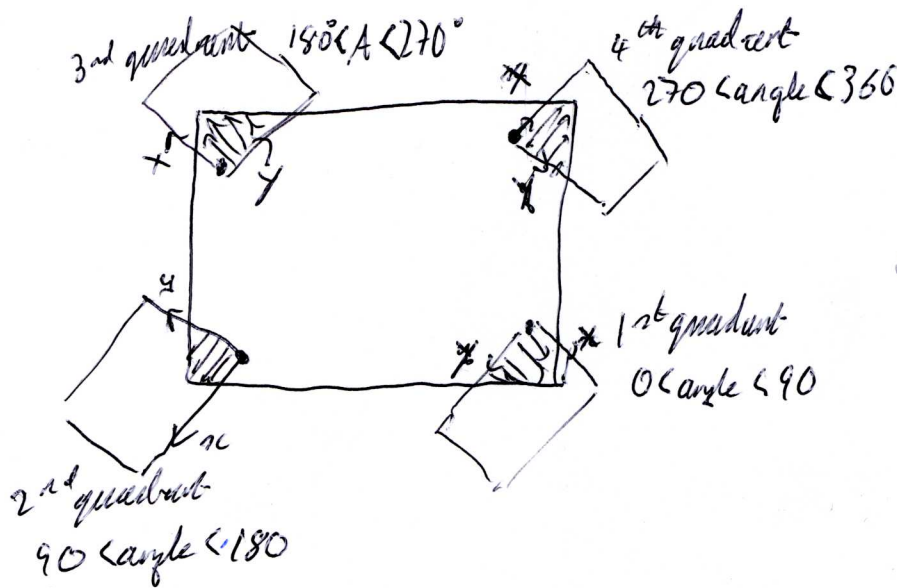 3rd quadrent 180°<A<270°
4th quadrent
270<angle<360
x
y
x
y
y
x
y
x
1st quadrant
0<angle<90
2nd quadrant
90<angle<180